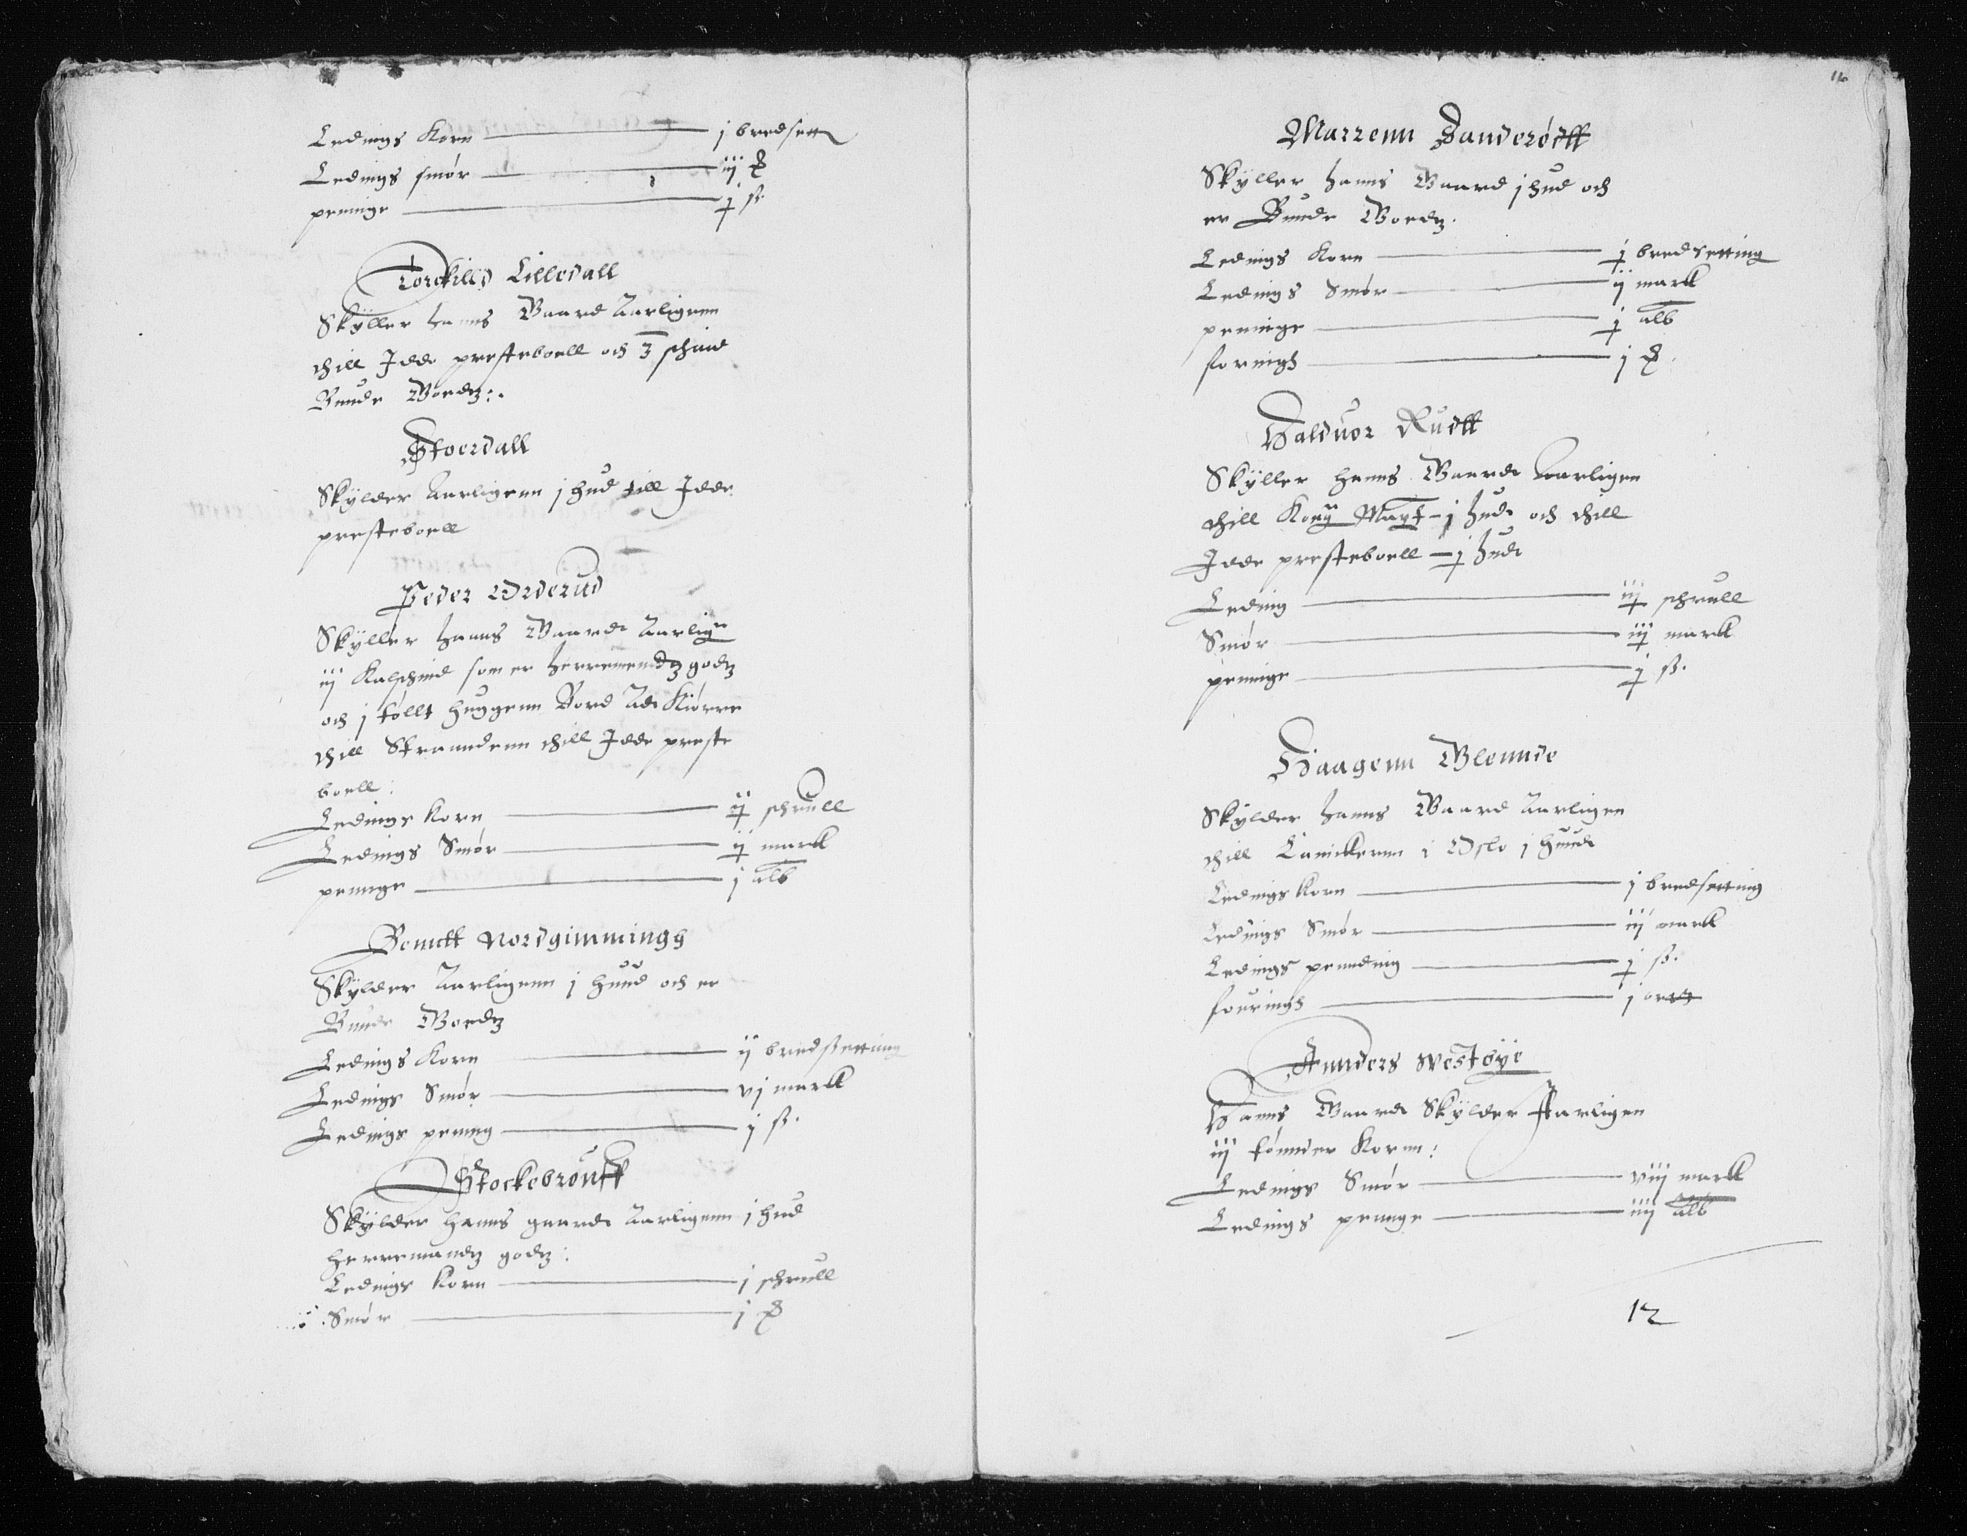 Ledings Korn — j bredsett
Ledings smør — iij
peninge — j ß.
Torckilld Lilledall
Skyller hanns Gaard Aarligenn
thill Idde presteboell och 3 schind
Bunde Goedz:.
Stoerdall
Skylder Aarligenn j hud till Idde
presteboell
Peder Orderud
Skyller hanns Gaard Aarligen
iij Kalschind som er herremendz godz
och j tóllt huggenn Bord Ad Kiørre
thill Stranndenn thill Idde preste
boell:
Ledings Korn — ij schrull
Ledings Smór — ij marck
peninge — j alb
Benctt Nordgimmingh
Skylder Aarligenn j huud och er
Bunde Goedz
Ledings Korn — ij bredsetting
Ledings Smór — vj marck
Ledings pening — j ß.
Stockebrøutt
Skylder hanns gaard Aarligenn j hud
herremandz godz:
Ledings Korn — j schrull
Smór — j
Marrenn Sanderødtt
Skyller hanns Gaard j hud och
er Bunde Goedz.
Ledings Korn — j bredsetting
Ledings Smór — ij marck
peninge — j alb
forningh — j
Halduor Rudtt
Skyller hanns Gaard Aarligen
thill Kong Maytt – j hud och thill
Idde presteboell – j hud
Leding — iij schrull
Smór — iij marck
peninge — j ß.
Haagenn Blennde
Skylder hanns Gaard Aarligen
thill Canickenn i Oslo j huud
Ledings Korn — j bredsetting
Ledings Smór — iij marck
Ledings pennding — j ß.
fouringh — j ortt
Annders Westøye
Hanns Gaard Skylder Aarligen
iij tónnder Kornn:
Ledings Smór — viij marck
Ledings peninge — iiij alb
12